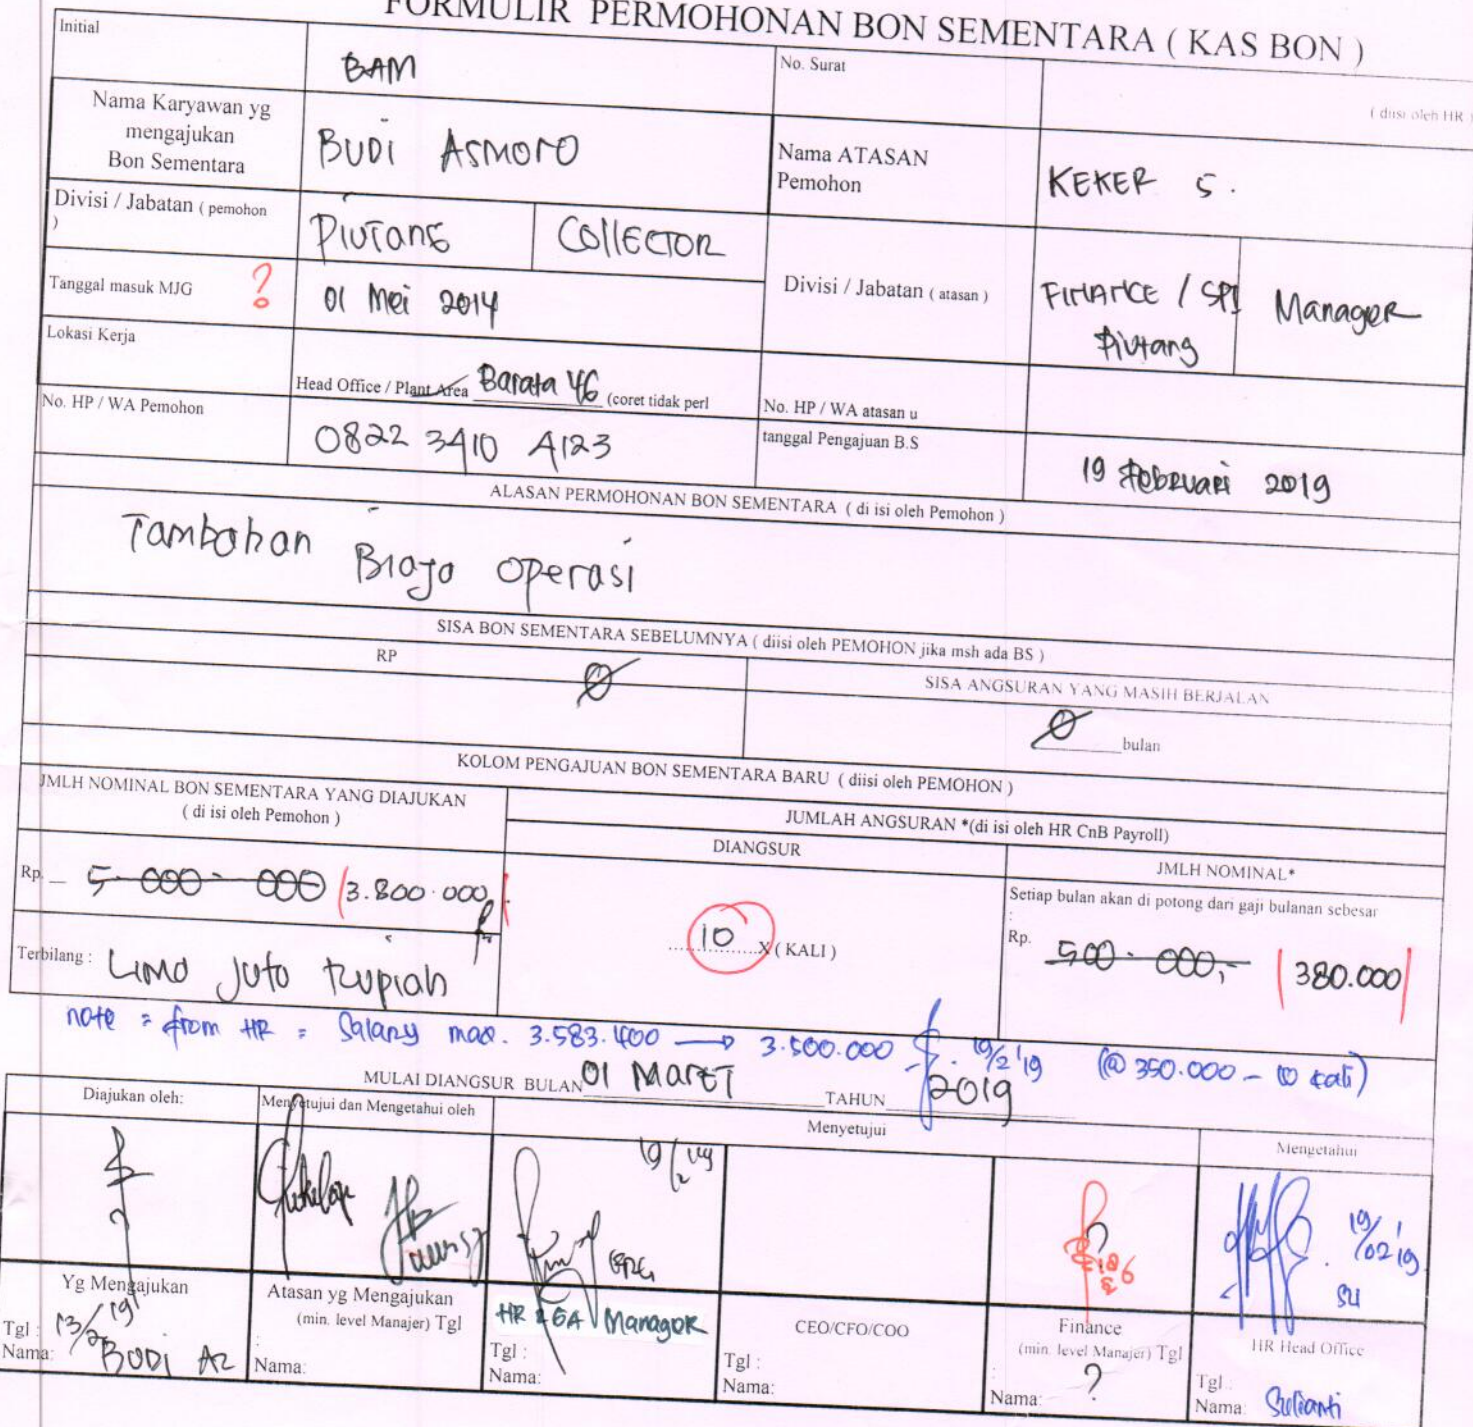 FORMULIR PERMOHONAN BON SEMENTARA ( KAS BON )
Initial
BAM
No. Surat
( diisi oleh HR )
Nama Karyawan yg
mengajukan
Bon Sementara
BUDI ASMORO
Nama ATASAN
Pemohon
KEKER S.
Divisi / Jabatan ( pemohon
)
PIUTANG
COLLECTOR
Divisi / Jabatan ( atasan )
FINANCE / SPI
Piutang
Manager
Tanggal masuk MJG
?
01 Mei 2014
Lokasi Kerja
Head Office / Plant Area Barata 46 (coret tidak perl
No. HP / WA atasan u
No. HP / WA Pemohon
0822 3410 4123
tanggal Pengajuan B.S
19 Februari 2019
ALASAN PERMOHONAN BON SEMENTARA ( di isi oleh Pemohon )
Tambahan Biaya operasi
SISA BON SEMENTARA SEBELUMNYA ( diisi oleh PEMOHON jika msh ada BS )
RP
SISA ANGSURAN YANG MASIH BERJALAN
0
0 bulan
KOLOM PENGAJUAN BON SEMENTARA BARU ( diisi oleh PEMOHON )
JMLH NOMINAL BON SEMENTARA YANG DIAJUKAN
( di isi oleh Pemohon )
JUMLAH ANGSURAN *(di isi oleh HR CnB Payroll)
DIANGSUR
JMLH NOMINAL*
Rp. 5.000.000 3.800.000
10 X ( KALI )
Setiap bulan akan di potong dari gaji bulanan sebesar
:
Rp. 500.000,- 380.000
Terbilang : Lima Juta Rupiah
note = from HR = Salary max. 3.583.400 → 3.500.000 19/2'19 (@ 350.000 – 10 kali)
MULAI DIANGSUR BULAN 01 MARET TAHUN 2019
Diajukan oleh:
Menyetujui dan Mengetahui oleh
Menyetujui
Mengetahui
19/2'19
19/02'19
Yg Mengajukan
Atasan yg Mengajukan
(min. level Manajer) Tgl
:
HR & GA Manager
CEO/CFO/COO
Finance
(min. level Manajer) Tgl
HR Head Office
Tgl : 13/2 19
Nama: BUDI AZ
Nama:
Tgl :
Nama:
Tgl :
Nama:
?
Nama:
Tgl :
Nama: Sulianti